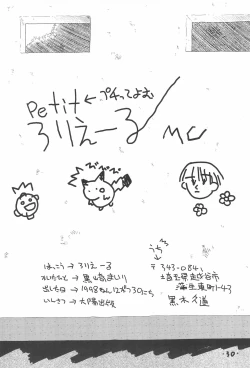 Petit ← プチってよむ
ろりえーる
MC
はっこう → ろりえーる
出した日 → 1998ねん12がつ30にち
いんさつ → 太陽出版
うちら
〒343-0841
埼玉県越谷市
蒲生東町1-43
黒木久道
30